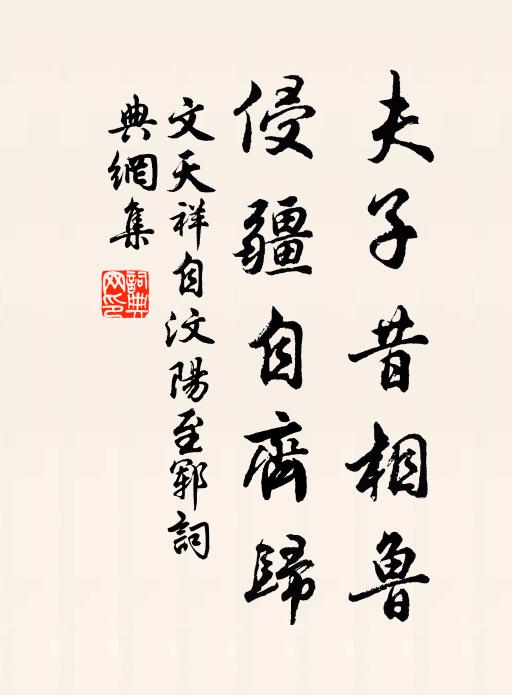 夫子昔相魯
侵疆自齊歸
文天祥自汶陽至鄆詞
典網集
詞典網印